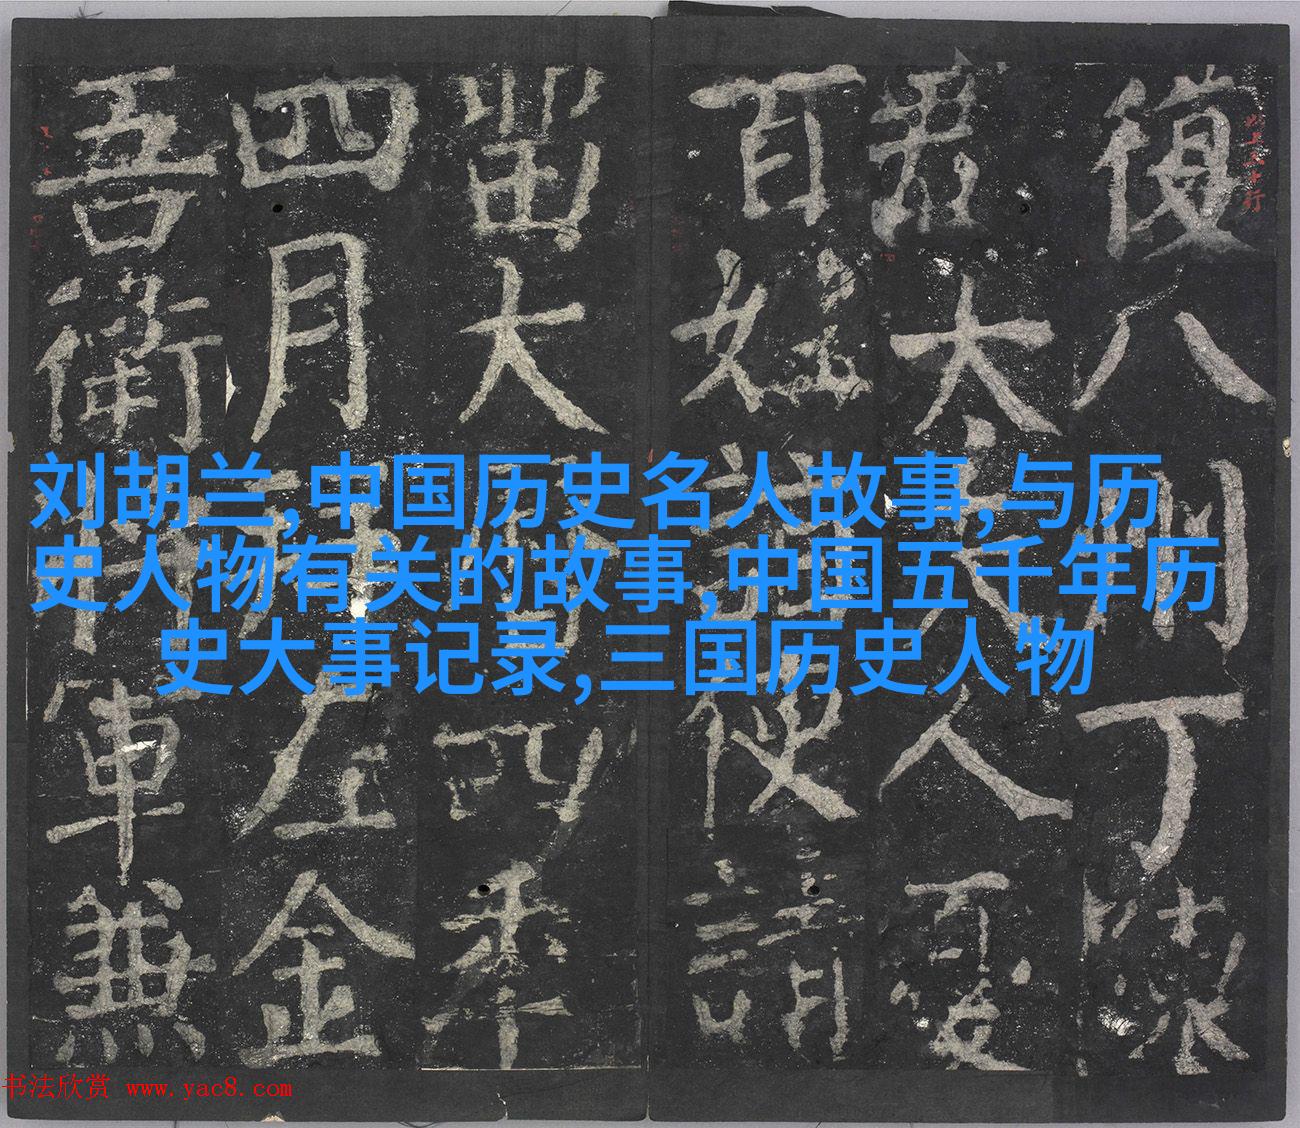 復八州丁陳
郡太夫人憂
百姓詣使請
留大曆四秊
四月拜左金
吾衛將軍兼
刘胡兰,中国历史名人故事,与历
史人物有关的故事,中国五千年历
史大事记录,三国历史人物
书法欣赏 www.yac8.com